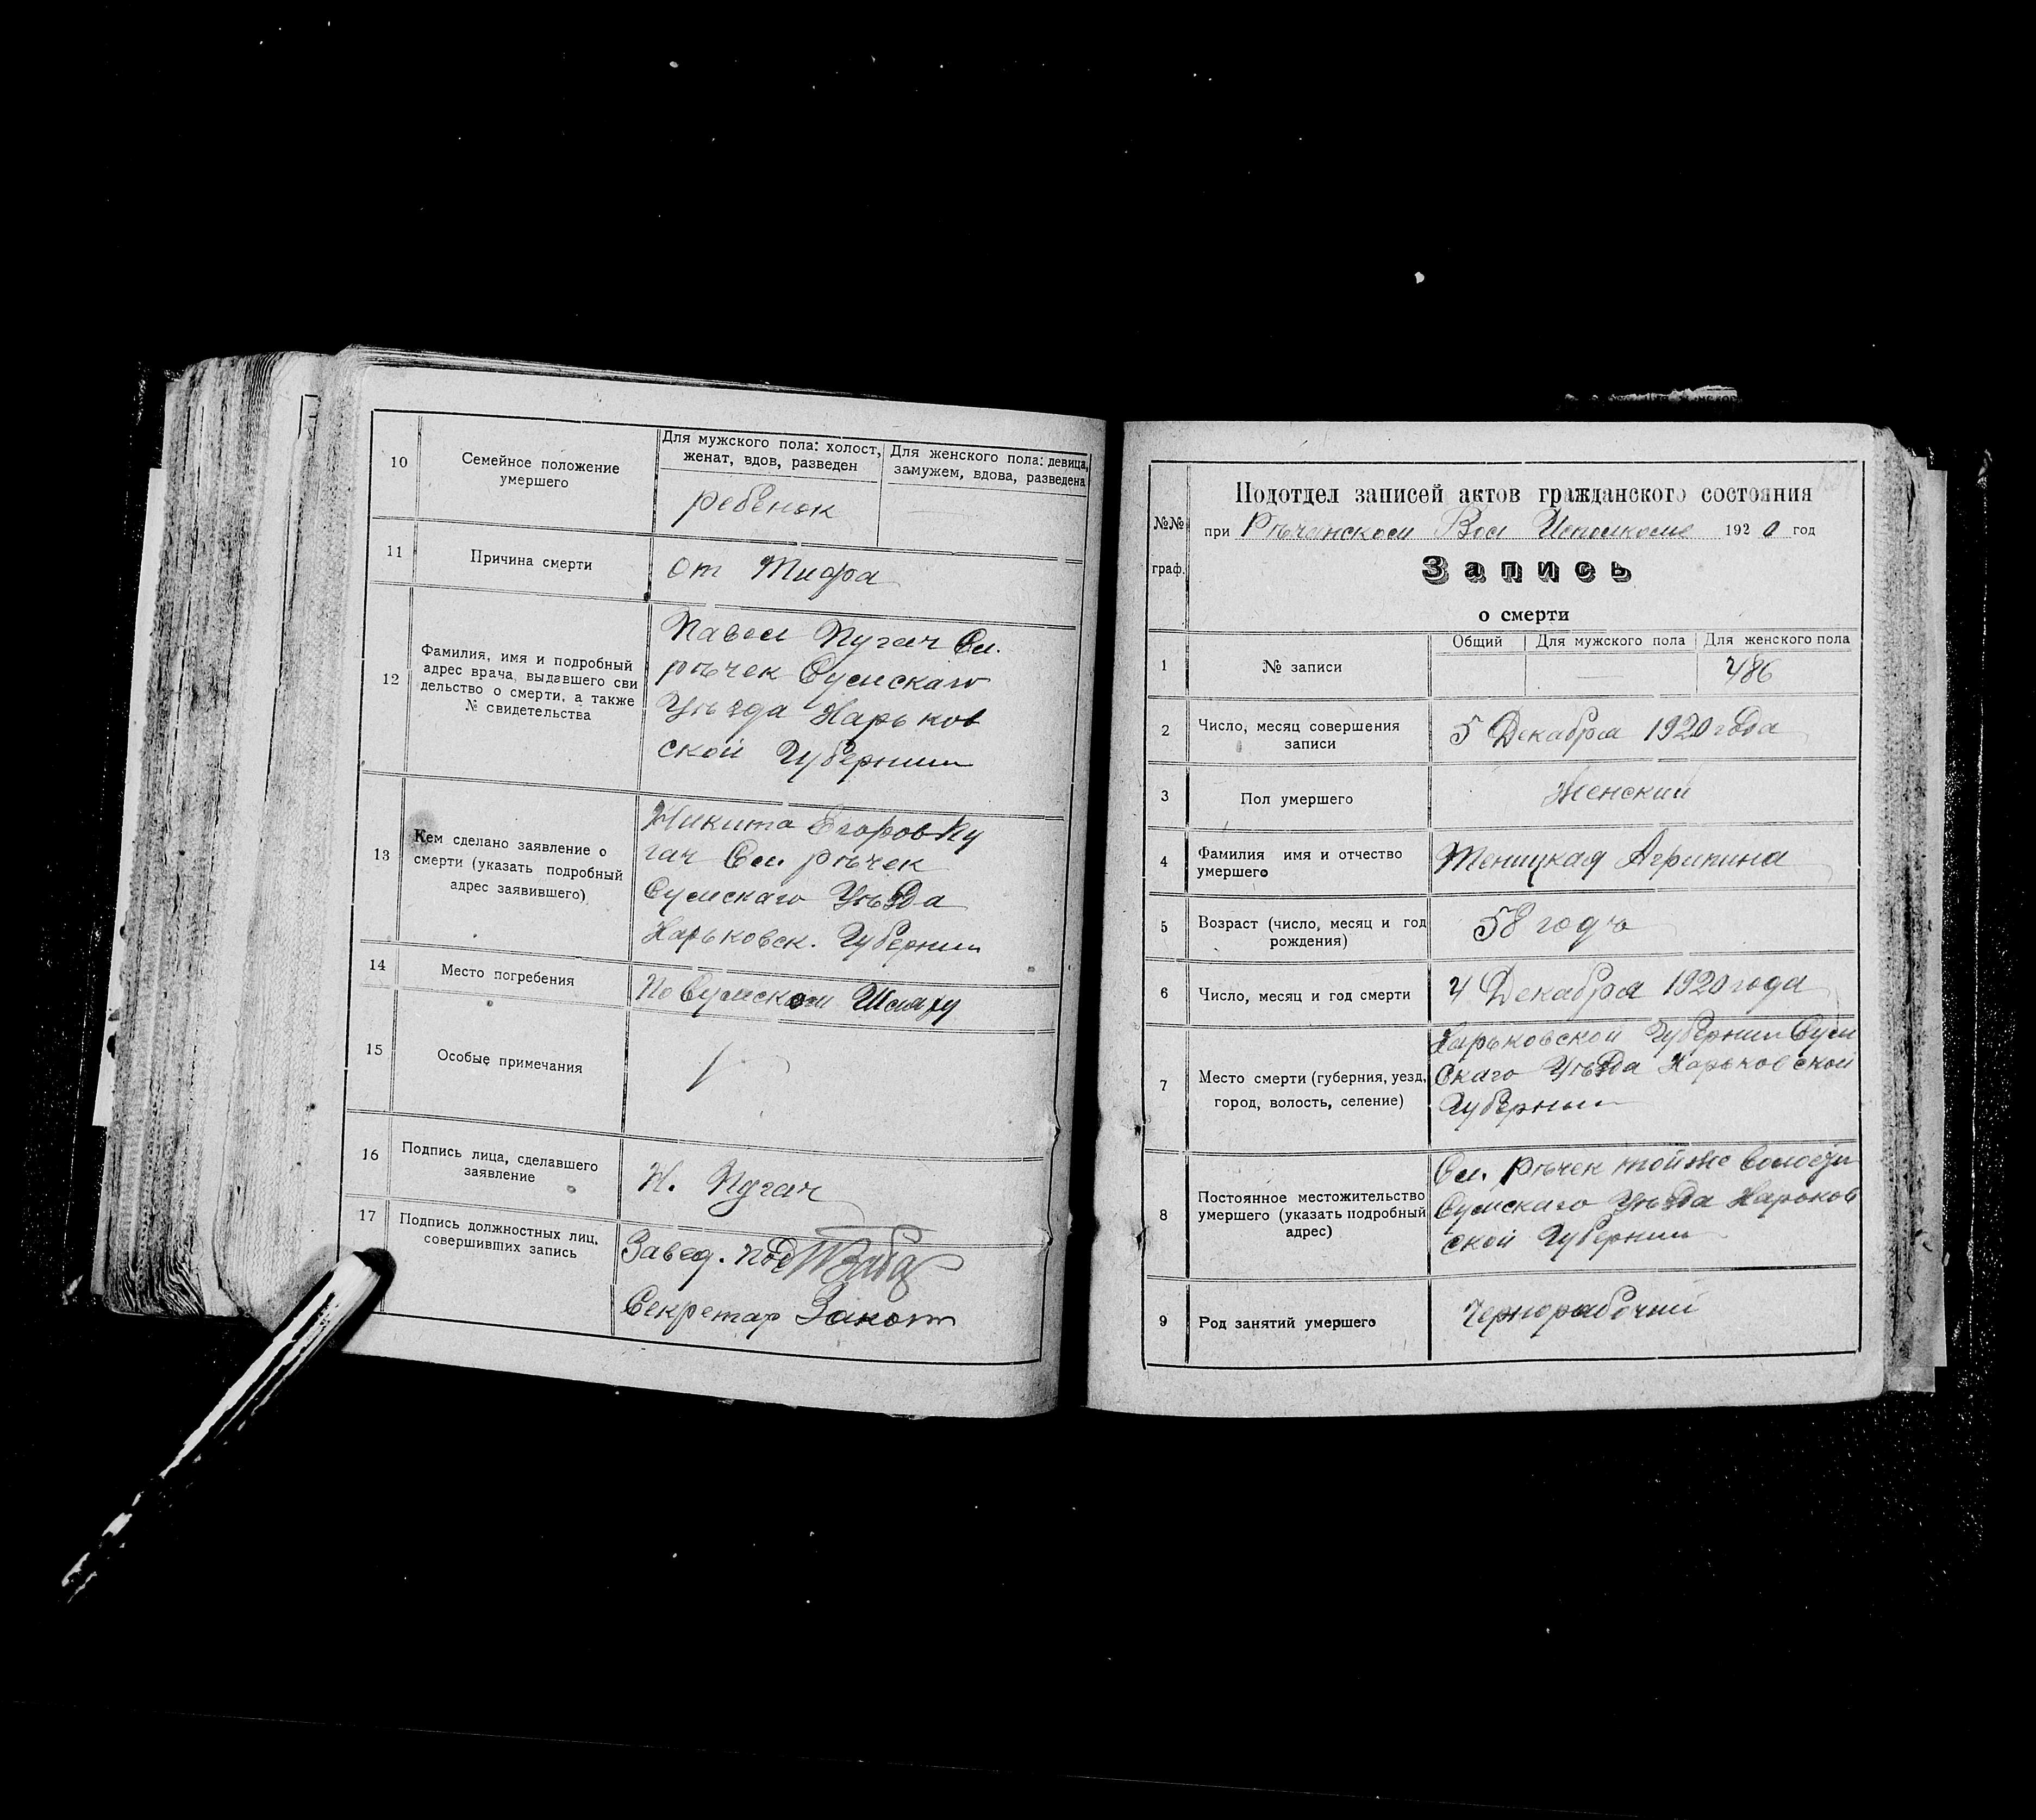 10
Семейное положение
умершего
Для мужского пола: холост,
женат, вдов, разведен
Для женского пола: девица,
замужем, вдова, разведена
ребенок
11
Причина смерти
от Тифа
12
Фамилия, имя и подробный
адрес врача, выдавшего сви
дельство о смерти, а также
№ свидетельства
Павел Пугач Сл.
рѣчек Сумскаго
Уѣзда Харьков
ской Губернии
13
Кем сделано заявление о
смерти (указать подробный
адрес заявившего)
Никита Егоров Пу
гач Сл. рѣчек
Сумскаго Уѣзда
Харьковск. Губернии
14
Место погребения
По Сумском Шляху
15
Особые примечания
16
Подпись лица, сделавшего
заявление
Н. Пугач
17
Подпись должностных лиц,
совершивших запись
Завед. Под
Секретар
№№
граф.
Подотдел записей актов гражданского состояния
при Рѣчанском Вол Исполкоме 1920 год
Запись
о смерти
1
№ записи
Общий
Для мужского пола
Для женского пола
486
2
Число, месяц совершения
записи
5 Декабря 1920 года
3
Пол умершего
Женский
4
Фамилия имя и отчество
умершего
Агрипина
5
Возраст (число, месяц и год
рождения)
58 годъ
6
Число, месяц и год смерти
4 Декабря 1920 года
7
Место смерти (губерния, уезд,
город, волость, селение)
Харьковской Губернии Сум
скаго Уѣзда Харьковской
Губернии
8
Постоянное местожительство
умершего (указать подробный
адрес)
Сл. Рѣчек тойже Волости
Сумскаго Уѣзда Харьков
ской Губернии
9
Род занятий умершего
Чернорабочий